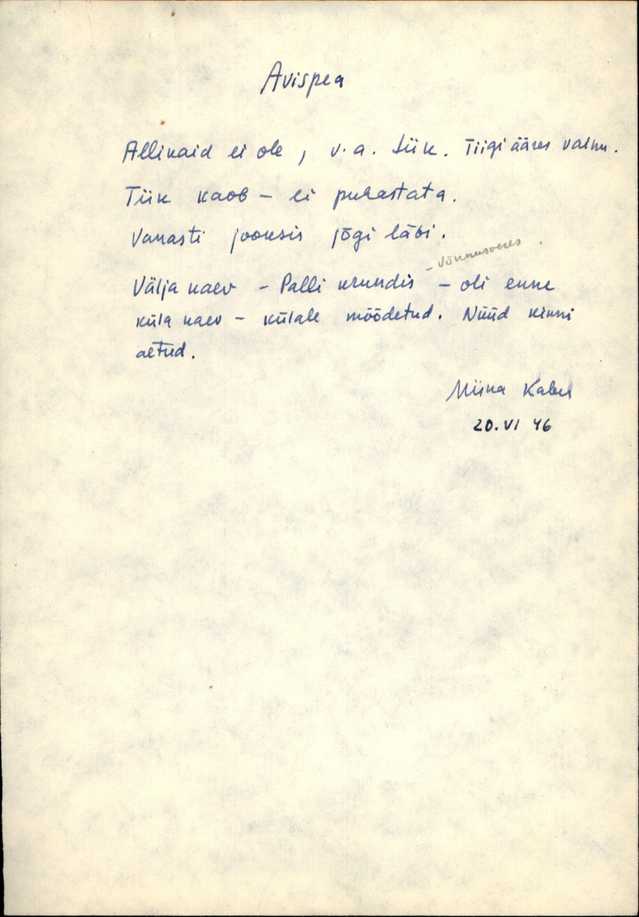 Avispea
Allikaid ei ole, v.a. tiik. Tiigi ääres
Tiik kaob – ei puhastata.
Vanasti jooksis jõgi läbi.
Välja kaev – Palli krundis – oli enne
küla kaev – külale mõõdetud. Nüüd kinni
aetud.
Miina
20.VI 46